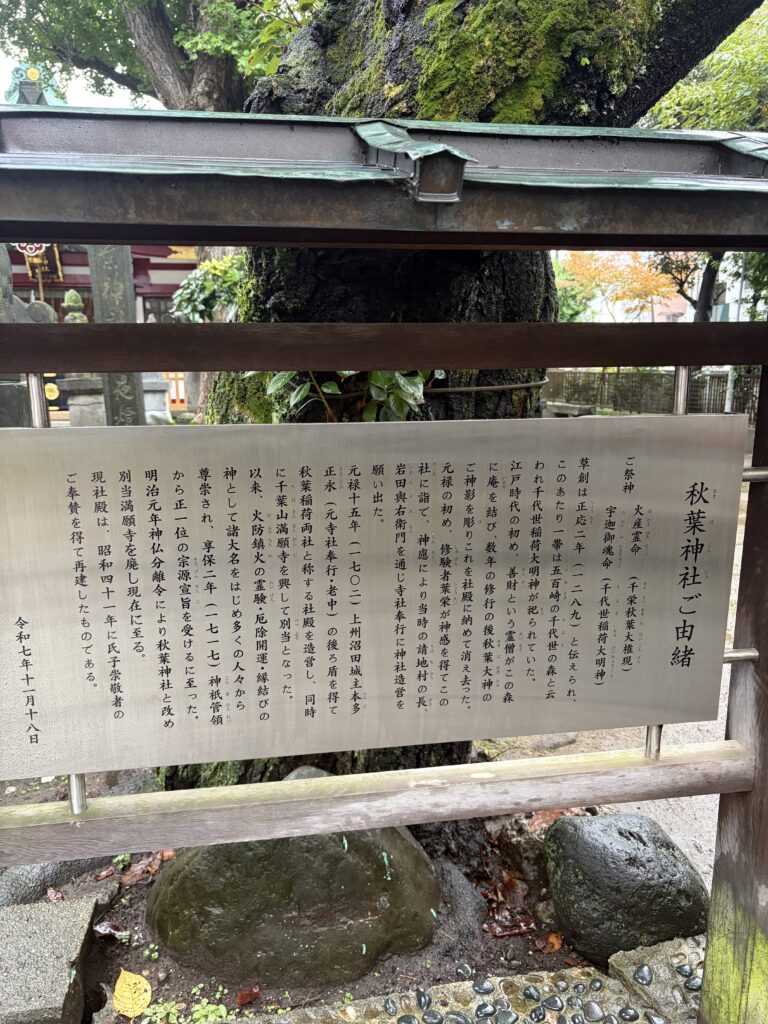 秋葉神社ご由緒
ご祭神
火産霊命 (千栄秋葉大権現)
宇迦御魂命 (千代世稲荷大明神)
草創は正応二年(一二八九)と伝えられ、
このあたり一帯は五百崎の千代世の森と云
われ千代世稲荷大明神が祀られていた。
江戸時代の初め、善財という霊僧がこの森
に庵を結び、数年の修行の後秋葉大神の
ご神影を彫りこれを社殿に納めて消え去った。
元禄の初め、修験者葉栄が神感を得てこの
社に詣て、神慮により当時の請地村の長、
岩田與右衛門を通じ寺社奉行に神社造営を
願い出た。
元禄十五年(一七〇二)上州沼田城主本多
正永(元寺社奉行・老中)の後ろ盾を得て
秋葉稲荷両社と称する社殿を造営し、同時
に千葉山満願寺を興して別当となった。
以来、火防鎮火の霊験・厄除開運・縁結びの
神として諸大名をはじめ多くの人々から
尊崇され、享保二年(一七一七)神祇管領
から正一位の宗源宣旨を受けるに至った。
明治元年神仏分離令により秋葉神社と改め
別当満願寺を廃し現在に至る。
現社殿は、昭和四十一年に氏子崇敬者の
ご奉賛を得て再建したものである。
令和七年十一月十八日